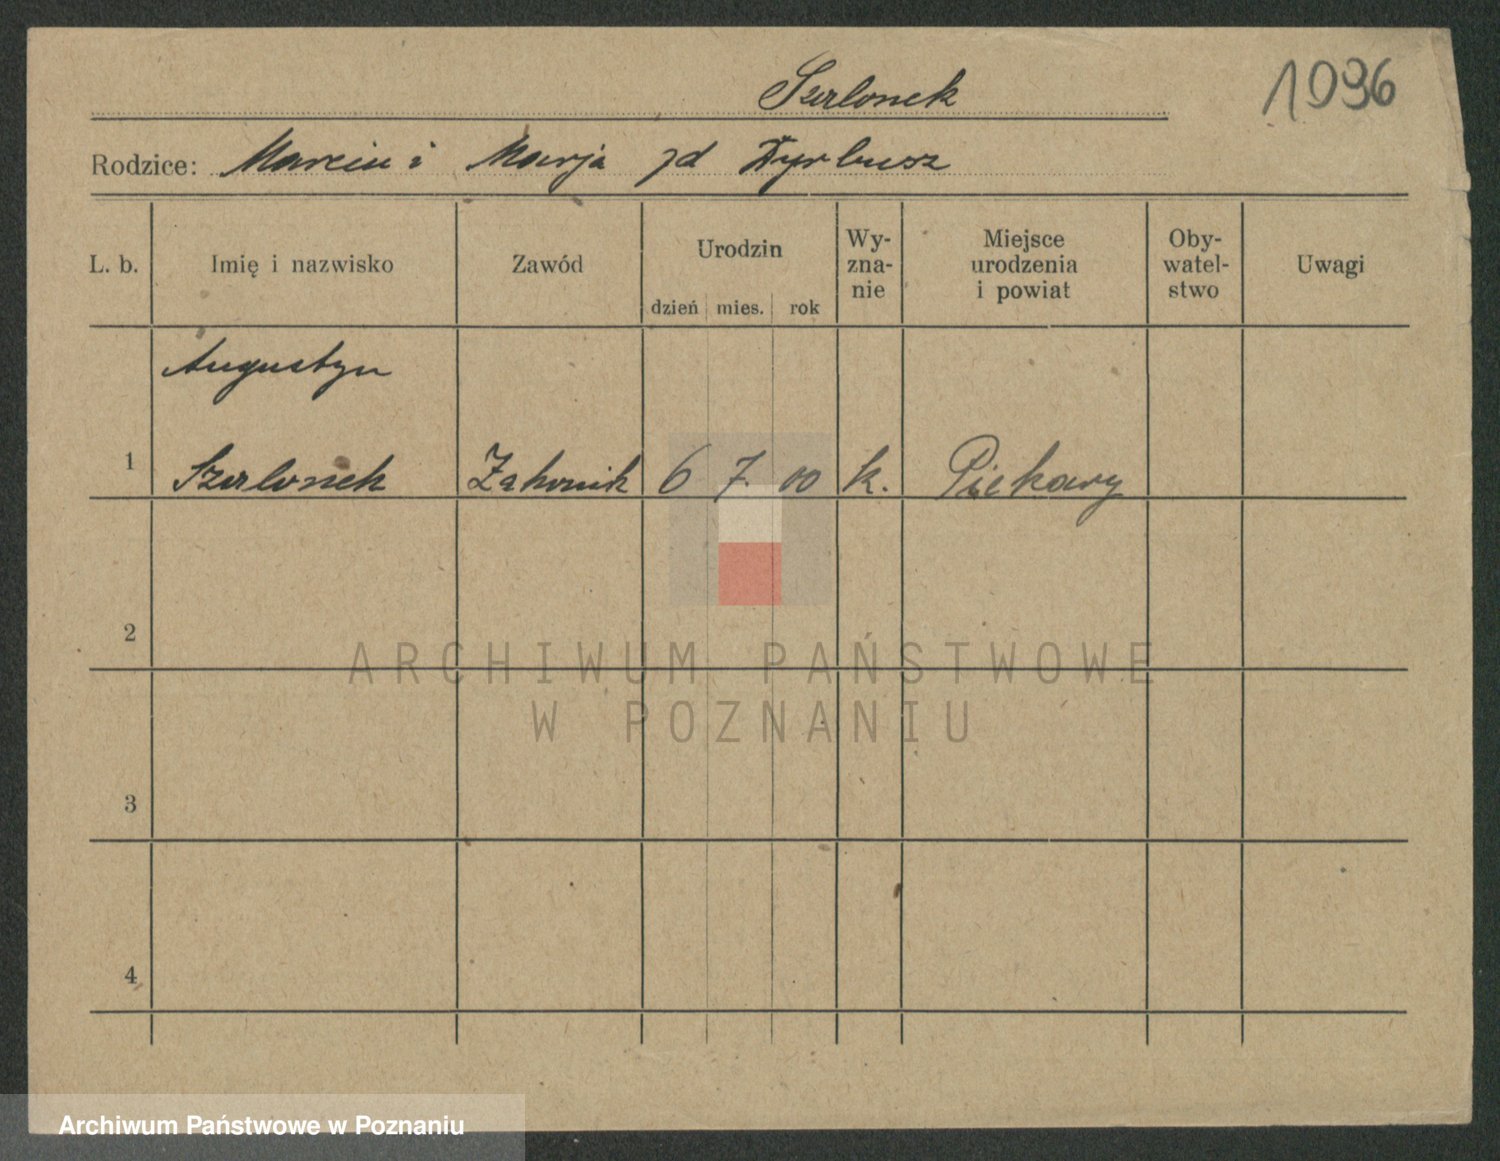 Szerlonek
1096
Rodzice: Marcin i Marja zd
L. b.
Imię i nazwisko
Zawód
Urodzin
dzień mies. rok
Wy-
zna-
nie
Miejsce
urodzenia
i powiat
Oby-
watel-
stwo
Uwagi
Augustyn
1 Szerlonek Zakonnik 6 7. 00 k. Piekary
2
3
4
ARCHIWUM PAŃSTWOWE
W POZNANIU
Archiwum Państwowe w Poznaniu